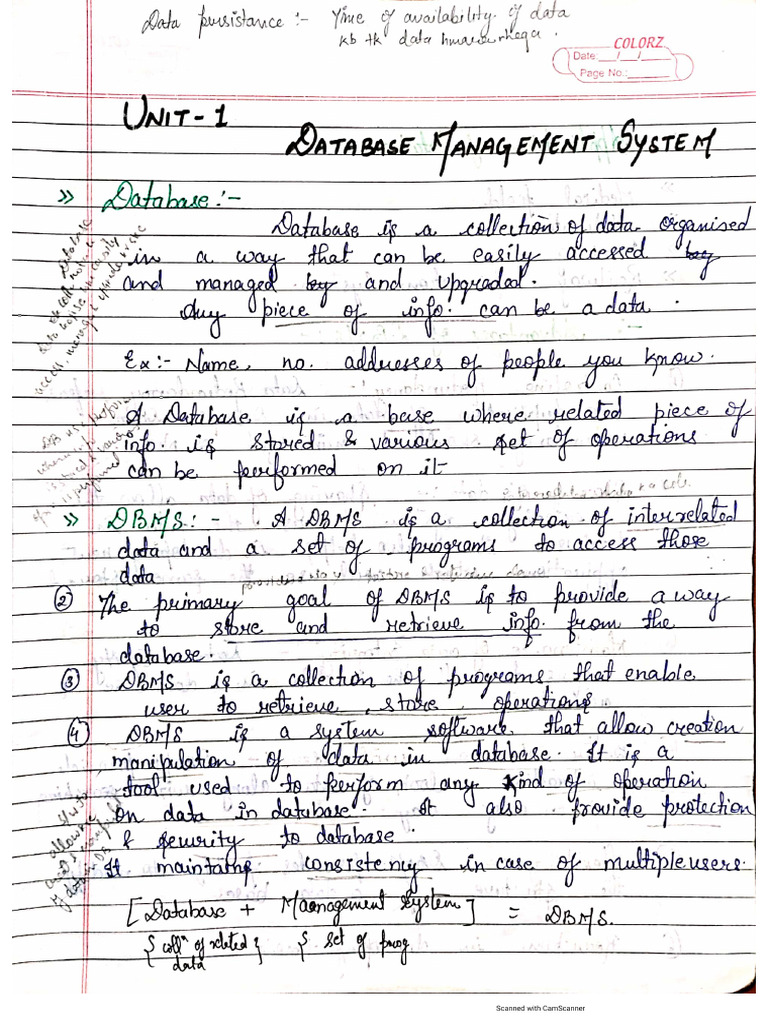 Data persistance :- Time of availability of data
kb tk data hmara rhega.
COLORZ
Date:__/__/__
Page No.:
UNIT-1
DATABASE MANAGEMENT SYSTEM
>> Database :-
Database is a collection of data organised
in a way that can be easily accessed by
and managed by and upgraded.
Any piece of info. can be a data.
Ex:- Name, no. addresses of people you know.
A Database is a base where related piece of
info. is stored & various set of operations
can be performed on it
>> DBMS: - A DBMS is a collection of interrelated
data and a set of programs to access those
data
② The primary goal of DBMS is to provide a way
to store and retrieve info. from the
database.
③ DBMS is a collection of programs that enable
user to retrieve, store operations.
④ DBMS is a system software that allow creation
manipulation of data in database. It is a
tool used to perform any kind of operation
on data in database. It also provide protection
& security to database.
It maintains consistency in case of multiple users.
[Database + Maangement System] = DBMS.
{collⁿ of related} { set of prog
data
Scanned with CamScanner